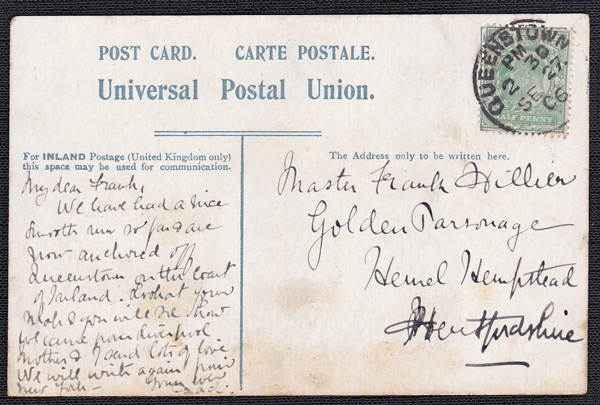 POST CARD. CARTE POSTALE.
Universal Postal Union.
QUEENSTOWN
2 PM
SE 27
06
HALF PENNY
For INLAND Postage (United Kingdom only)
this space may be used for communication.
The Address only to be written here.
My dear Frank,
We have had a nice
smooth run so far & are
now anchored off
Queenstown on the coast
of Ireland. Look at your
map & you will see how
we came from Liverpool
Mother & I send lots of love
We will write again from
New York - Your
Dad.
Master Frank Hillier
Golden Parsonage
Hemel Hempstead
Hertfordshire